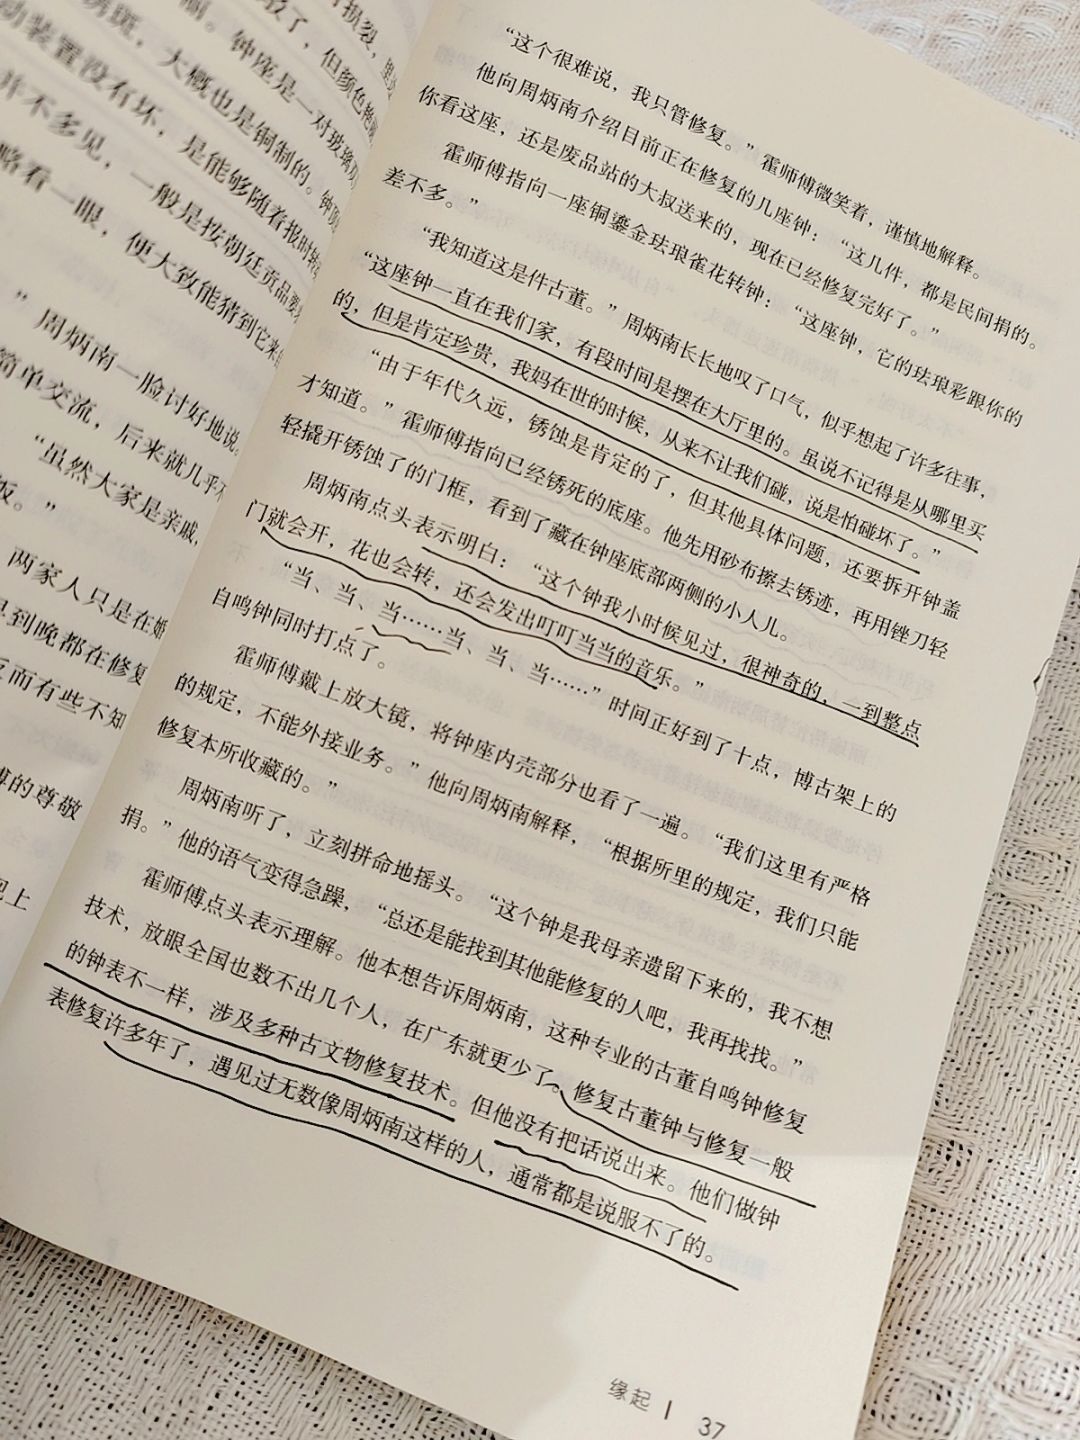 损裂，里
设了，但颜色艳
锈斑，大概也是铜制的。钟顶
制。钟座是一对玻璃
动装置没有坏，是能够随着报时转
并不多见，一般是按朝廷贡品要
略看一眼，便大致能猜到它来
”周炳南一脸讨好地说。
简单交流，后来就几乎不
“虽然大家是亲戚，
饭。”
两家人只是在婚
早到晚都在修复
反而有些不知
傅的尊敬
“这个很难说，我只管修复。”霍师傅微笑着，谨慎地解释。
他向周炳南介绍目前正在修复的几座钟：“这几件，都是民间捐的。
你看这座，还是废品站的大叔送来的，现在已经修复完好了。”
霍师傅指向一座铜鎏金珐琅雀花转钟：“这座钟，它的珐琅彩跟你的
差不多。”
“我知道这是件古董。”周炳南长长地叹了口气，似乎想起了许多往事，
“这座钟一直在我们家，有段时间是摆在大厅里的。虽说不记得是从哪里买
的，但是肯定珍贵，我妈在世的时候，从来不让我们碰，说是怕碰坏了。”
“由于年代久远，锈蚀是肯定的了，但其他具体问题，还要拆开钟盖
才知道。”霍师傅指向已经锈死的底座。他先用砂布擦去锈迹，再用锉刀轻
轻撬开锈蚀了的门框，看到了藏在钟座底部两侧的小人儿。
周炳南点头表示明白：“这个钟我小时候见过，很神奇的，一到整点
门就会开，花也会转，还会发出叮叮当当的音乐。”
“当、当、当……当、当、当……”时间正好到了十点，博古架上的
自鸣钟同时打点了。
霍师傅戴上放大镜，将钟座内壳部分也看了一遍。“我们这里有严格
的规定，不能外接业务。”他向周炳南解释，“根据所里的规定，我们只能
修复本所收藏的。”
周炳南听了，立刻拼命地摇头。“这个钟是我母亲遗留下来的，我不想
捐。”他的语气变得急躁，“总还是能找到其他能修复的人吧，我再找找。”
霍师傅点头表示理解。他本想告诉周炳南，这种专业的古董自鸣钟修复
技术，放眼全国也数不出几个人，在广东就更少了。修复古董钟与修复一般
的钟表不一样，涉及多种古文物修复技术。但他没有把话说出来。他们做钟
表修复许多年了，遇见过无数像周炳南这样的人，通常都是说服不了的。
缘起 | 37